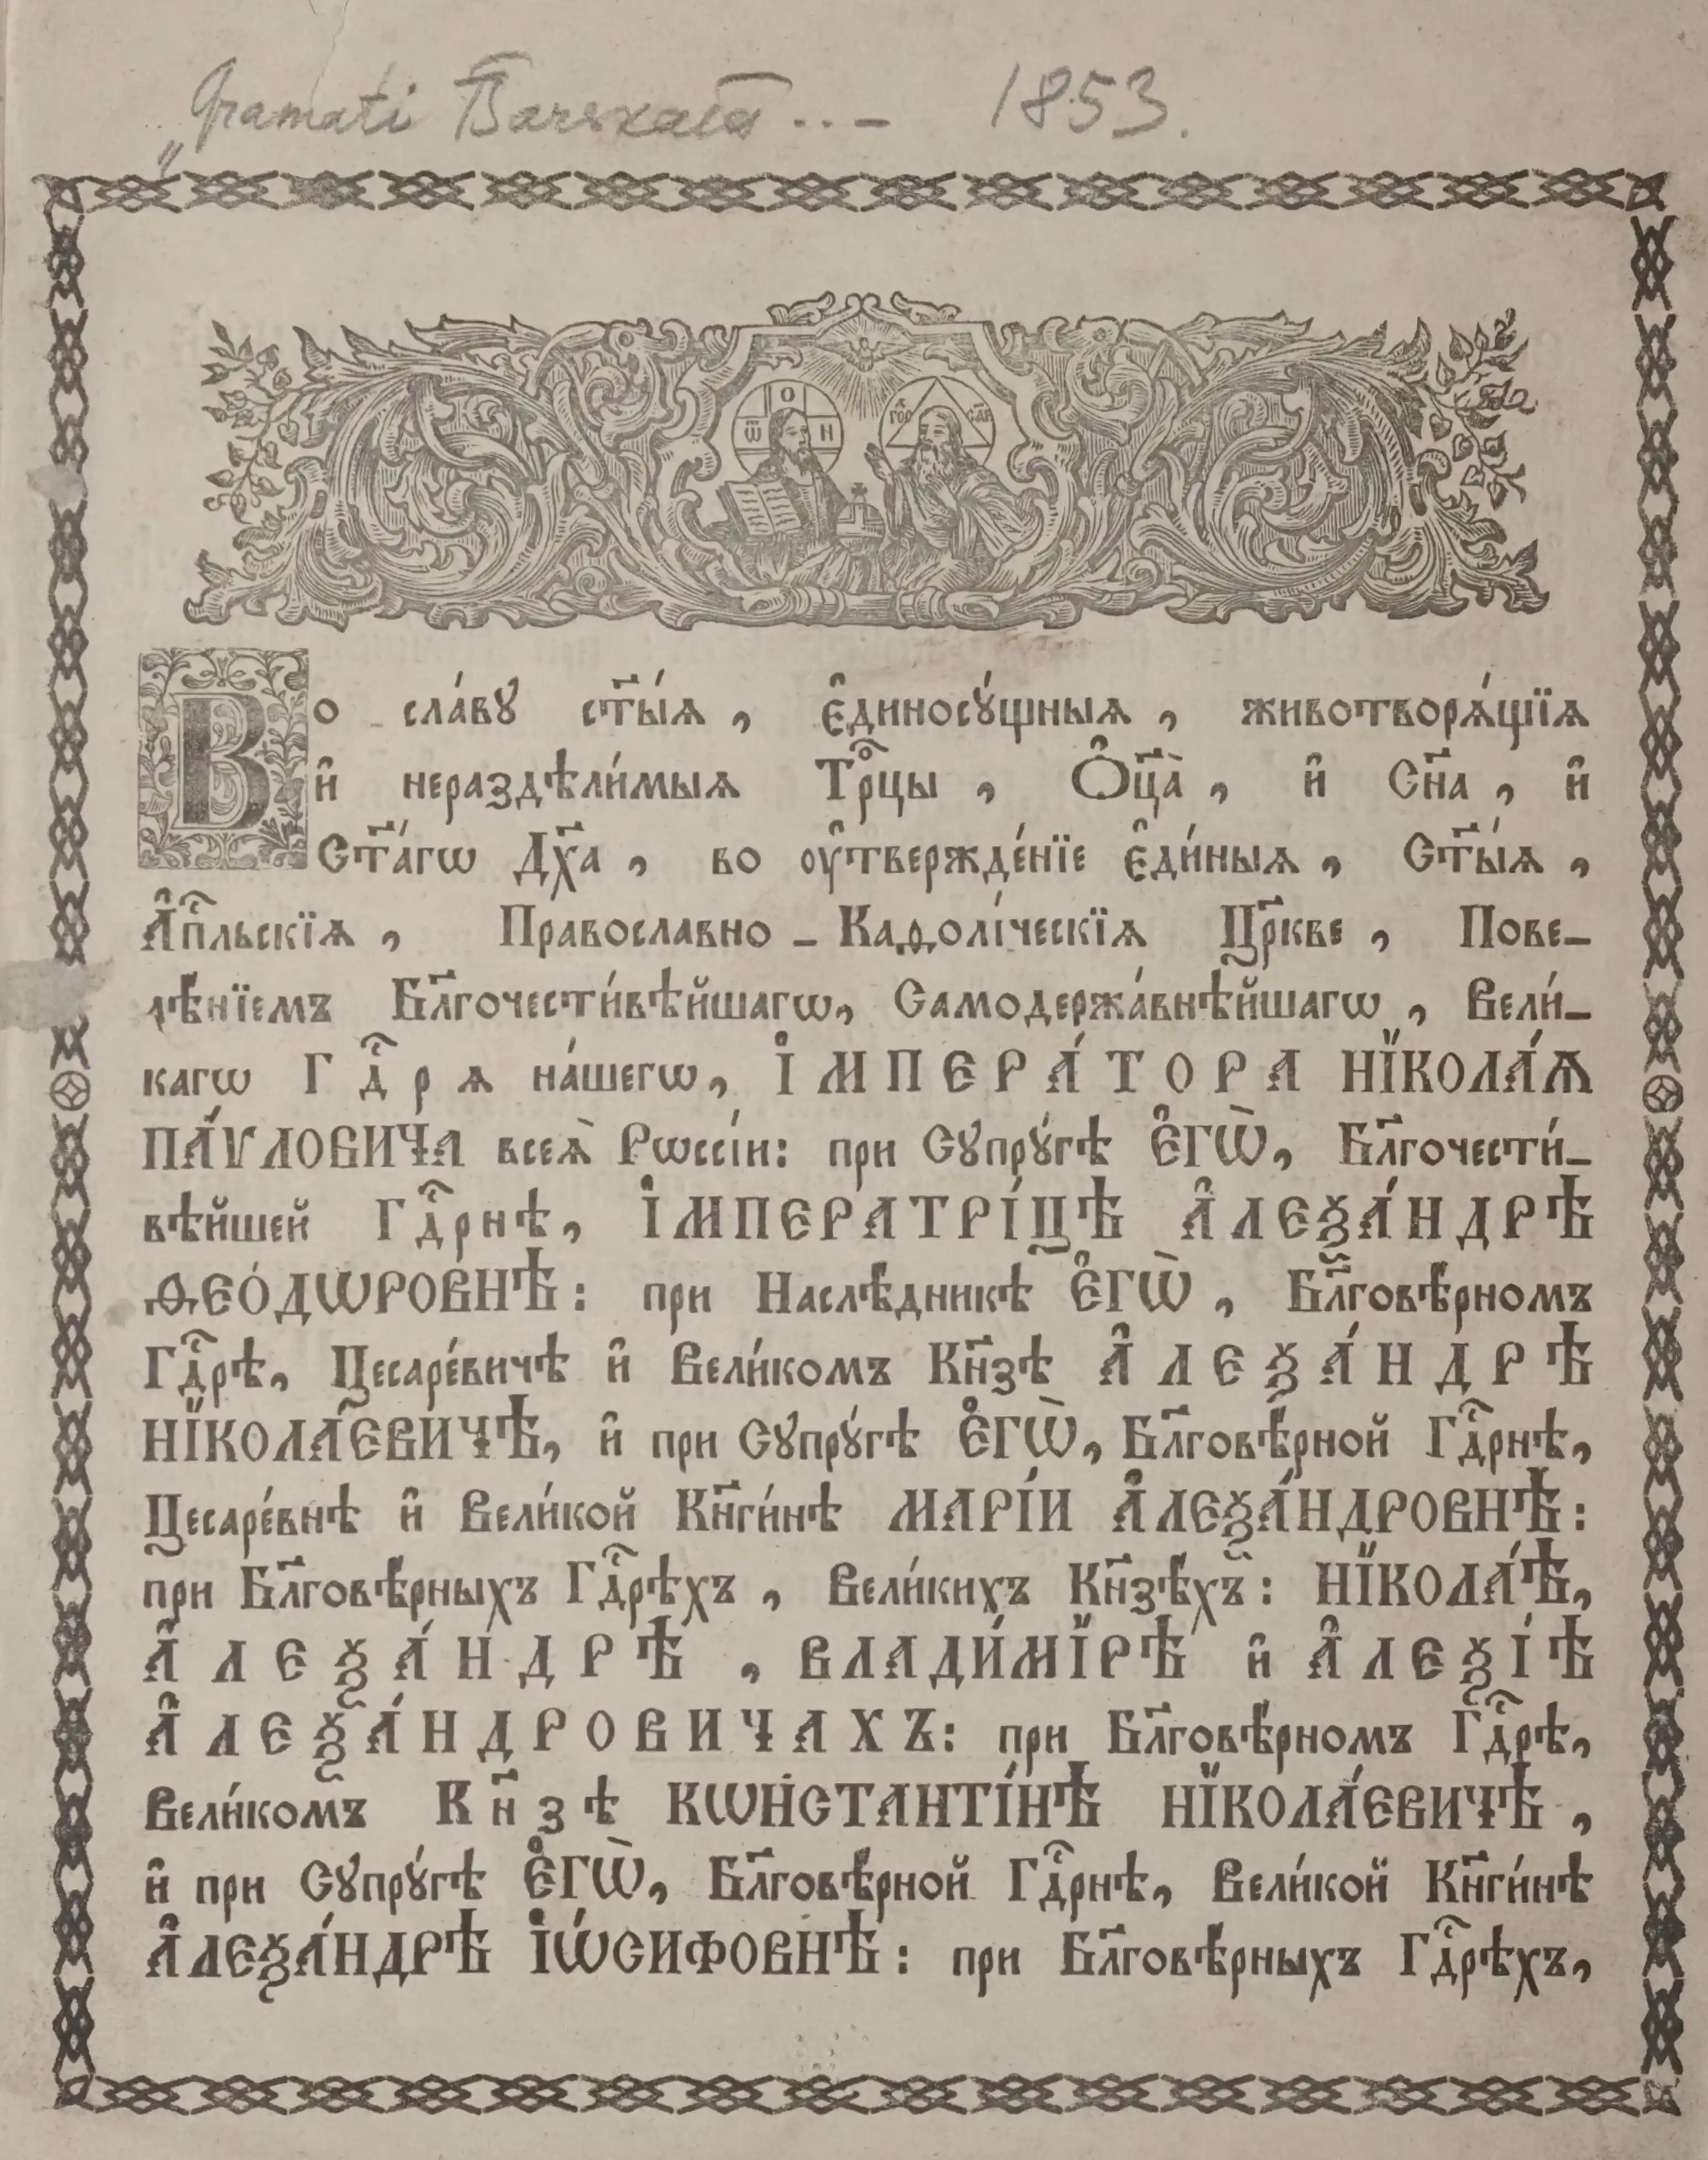 „Gramati 1853.
О
ѾѠ Н
Во сла́вꙋ ст҃ы́ѧ , є҆диносꙋ́щныѧ , животворѧ́щїѧ
и҆ нераздѣли́мыѧ Трⷪ҇цы , Ѻ҆ц҃а̀ , и҆ Сн҃а , и҆
Ст҃а́гѡ Дх҃а , во ᲂу҆твержде́нїе є҆ди́ныѧ , Ст҃ы́ѧ ,
А҆пⷭ҇льскїѧ , Православно - Каѳолі́ческїѧ Цр҃кве , Пове-
лѣ́нїемъ Бл҃гочести́вѣйшагѡ, Самодержа́внѣйшагѡ , Вели́-
кагѡ Гдⷭ҇рѧ на́шегѡ, І҆МПЕРА́ТОРА НЇКОЛА́Ѧ
ПА́ѴЛОВИЧА всеѧ̀ Рѡссі́и: при Сꙋпрꙋ́гѣ Є҆ГѠ̀, Бл҃гочести́-
вѣйшей Гдⷭ҇рнѣ, І҆МПЕРАТРІ́ЦѢ А҆ЛЕѮА́НДРѢ
ѲЕО́ДѠРОВНѢ: при Наслѣ́дникѣ Є҆ГѠ̀ , Бл҃говѣ́рномъ
Гдⷭ҇рѣ, Цесаре́вичѣ и҆ Вели́комъ Кн҃зѣ А҆ЛЕѮА́НДРѢ
НЇКОЛА́ЕВИЧѢ, и҆ при Сꙋпрꙋ́гѣ Є҆ГѠ̀, Бл҃говѣ́рной Гдⷭ҇рнѣ,
Цесаре́внѣ и҆ Вели́кой Кн҃ги́нѣ МАРІ́И А҆ЛЕѮА́НДРОВНѢ:
при Бл҃говѣ́рныхъ Гдⷭ҇рѣхъ , Вели́кихъ Кн҃зѣ́хъ: НЇКОЛА́Ѣ,
А҆ЛЕѮА́НДРѢ , ВЛАДИ́МЇРѢ и҆ А҆ЛЕѮІ́Ѣ
А҆ЛЕѮА́НДРОВИЧАХЪ: при Бл҃говѣ́рномъ Гдⷭ҇рѣ,
Вели́комъ Кн҃зѣ КѠНСТАНТІ́НѢ НЇКОЛА́ЕВИЧѢ ,
и҆ при Сꙋпрꙋ́гѣ Є҆ГѠ̀, Бл҃говѣ́рной Гдⷭ҇рнѣ, Вели́кой Кн҃ги́нѣ
А҆ЛЕѮА́НДРѢ І҆Ѡ́СИФОВНѢ: при Бл҃говѣ́рныхъ Гдⷭ҇рѣхъ,